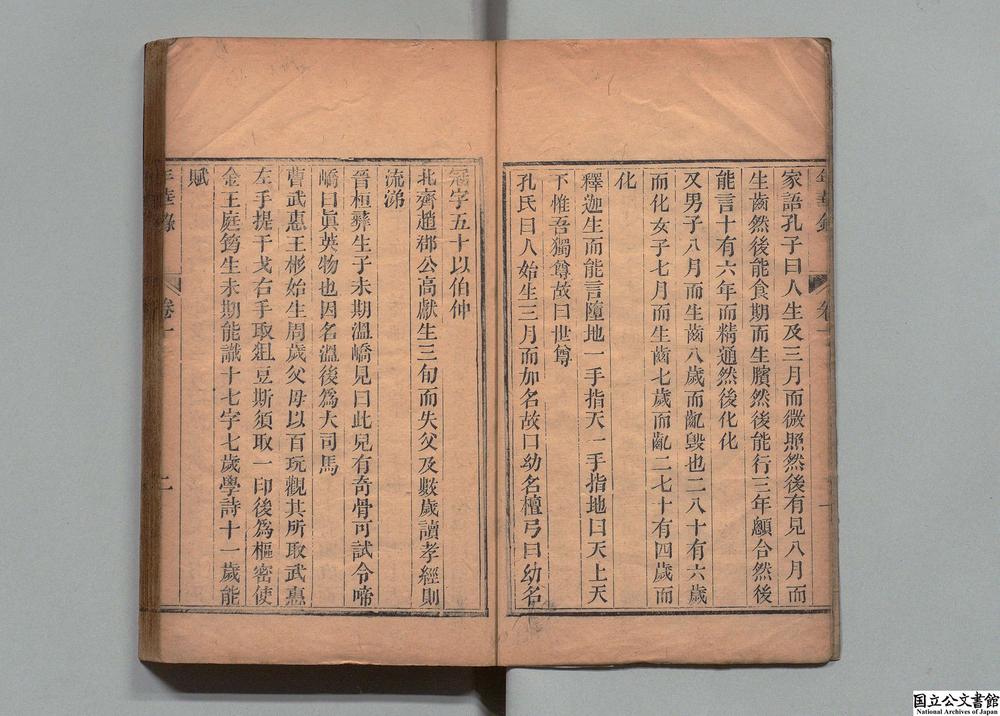 年華錄
卷一
一
家語孔子曰人生及三月而微煦然後有見八月而
生齒然後能食期而生臏然後能行三年顱合然後
能言十有六年而精通然後化化
又男子八月而生齒八歲而齔毀也二八十有六歲
而化女子七月而生齒七歲而齔二七十有四歲而
化
釋迦生而能言墮地一手指天一手指地曰天上天
下惟吾獨尊故曰世尊
孔氏曰人始生三月而加名故曰幼名檀弓曰幼名
冠字五十以伯仲
北齊趙郡公高獻生三旬而失父及數歲讀孝經則
流涕
晉桓彝生子未期溫嶠見曰此兒有奇骨可試令啼
嶠曰眞英物也因名溫後爲大司馬
曹武惠王彬始生周歲父母以百玩觀其所取武惠
左手提干戈右手取俎豆斯須取一印後爲樞密使
金王庭筠生未期能識十七字七歲學詩十一歲能
賦
年華錄
卷一
二
国立公文書館
National Archives of Japan